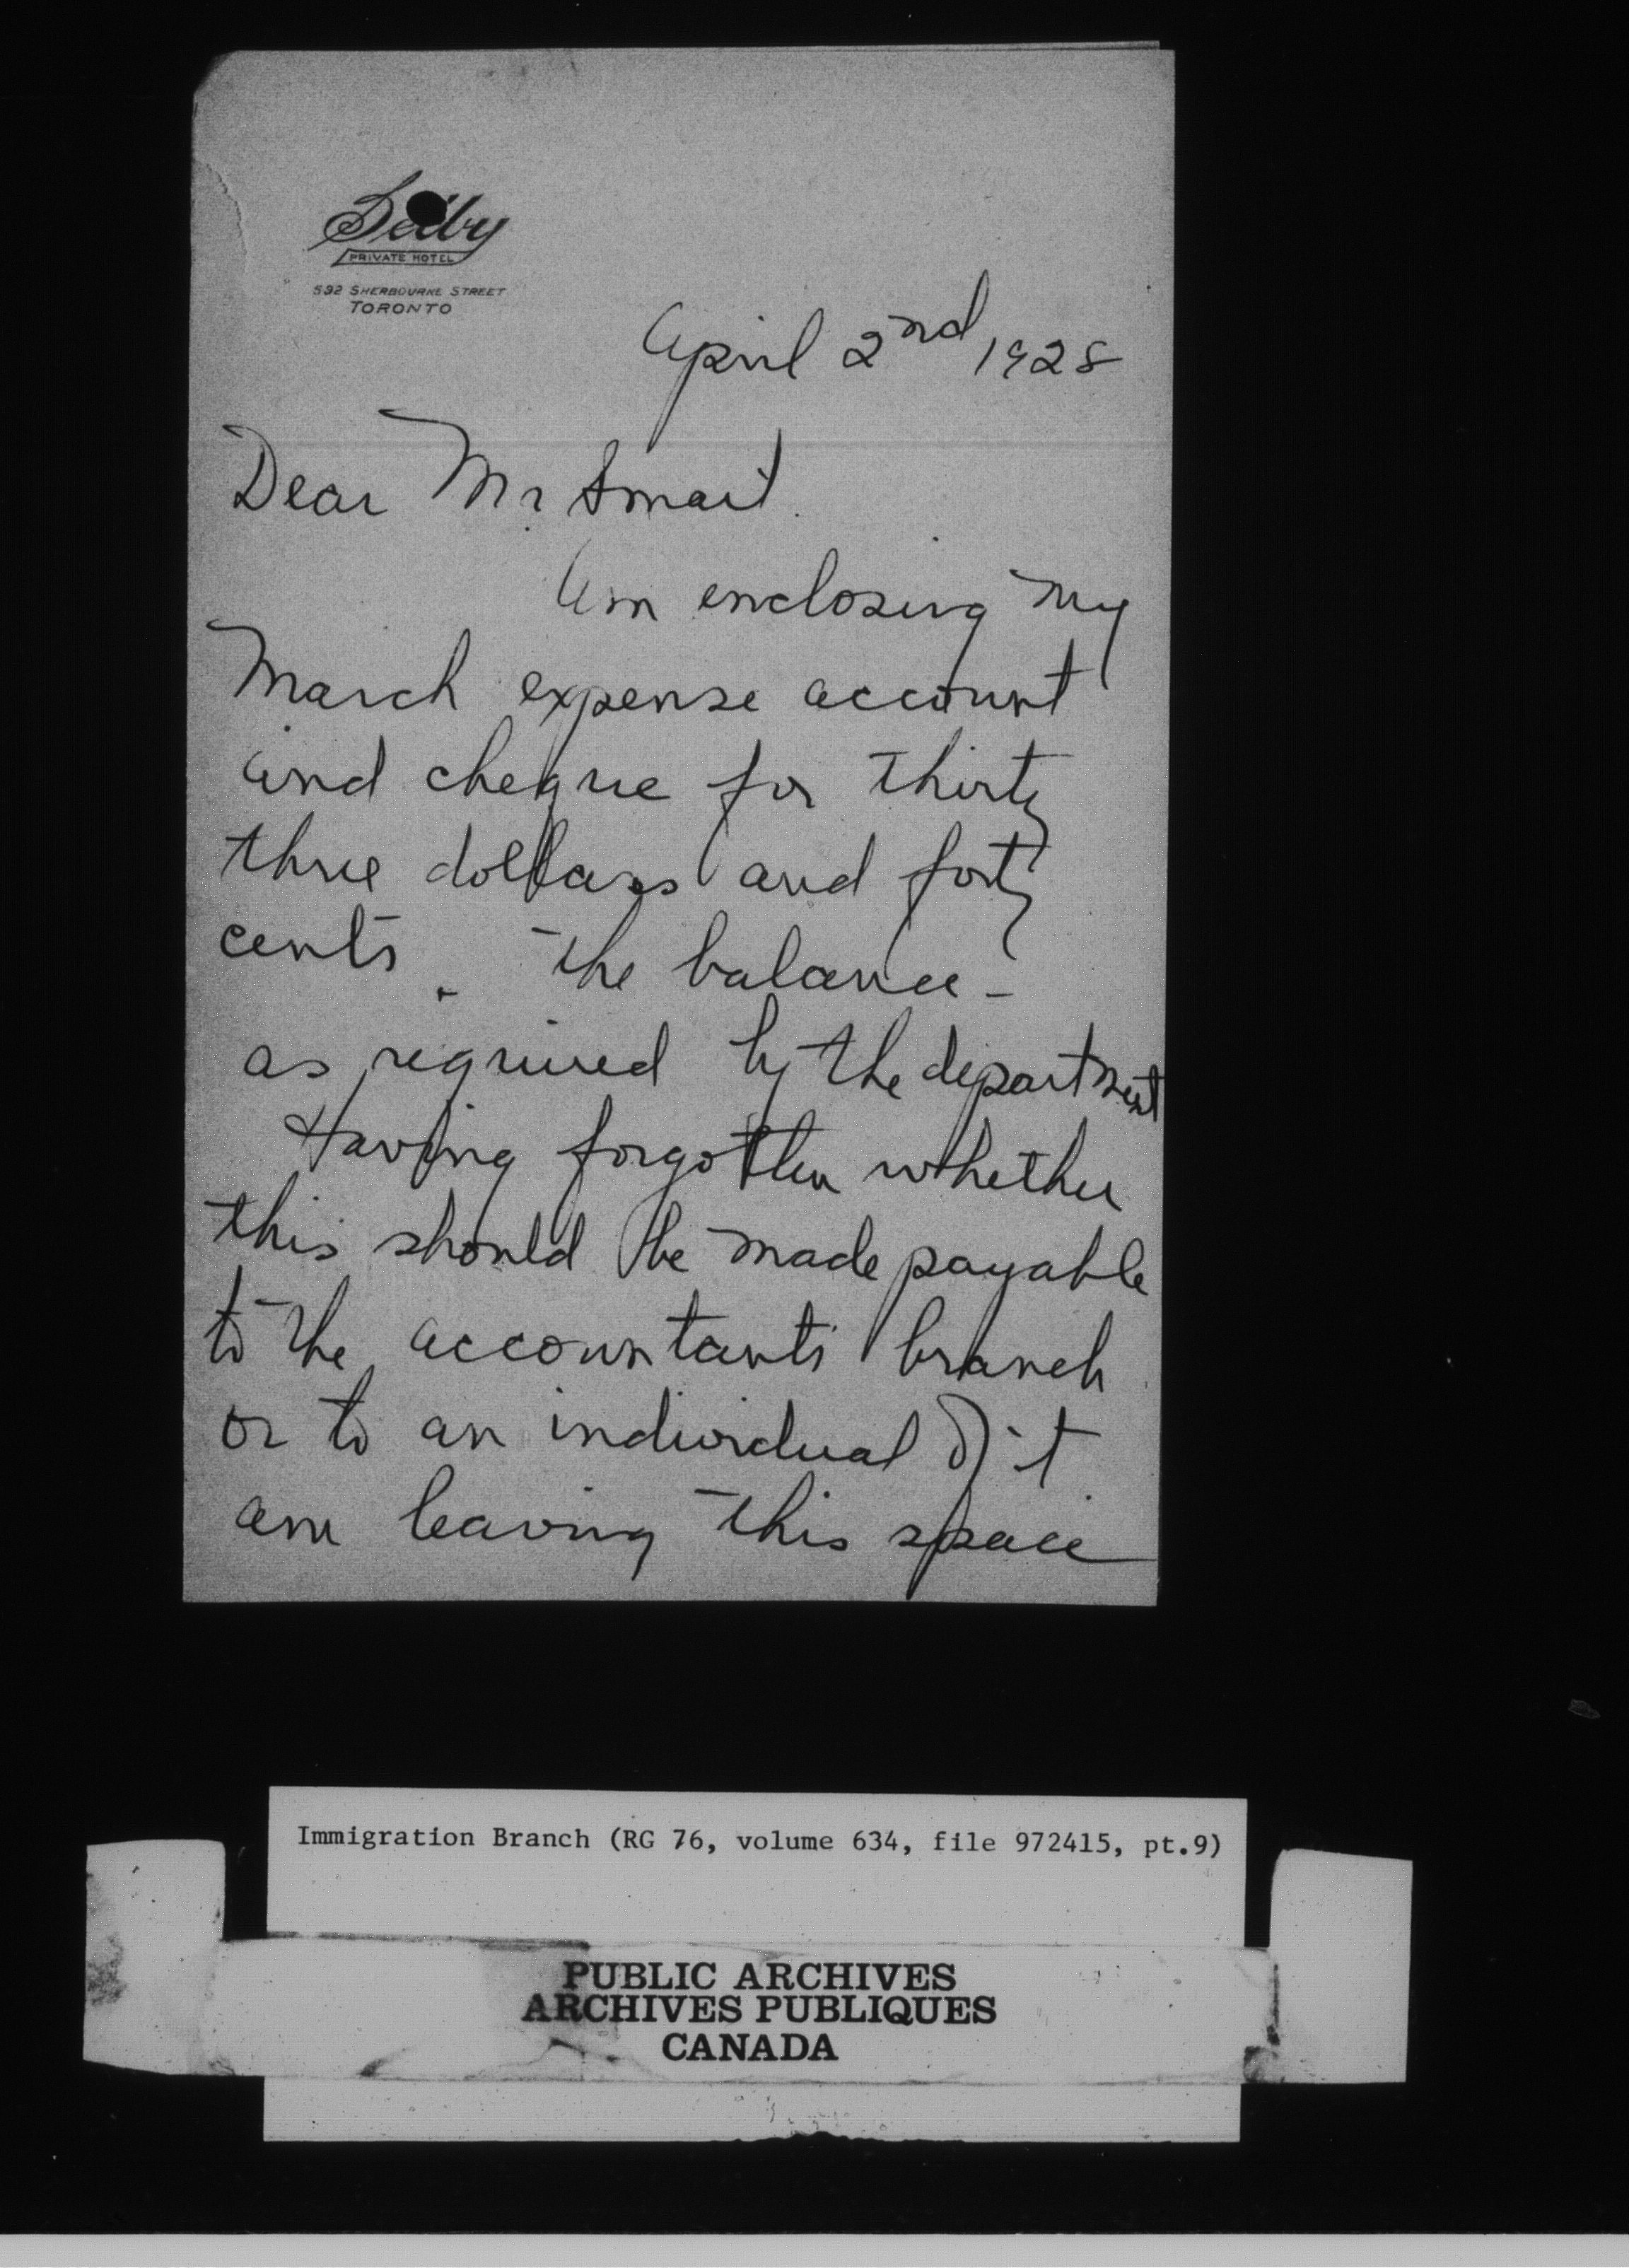 Selby
PRIVATE HOTEL
592 SHERBOURNE STREET
TORONTO
April 2nd, 1928
Dear Mr Smart.
Am enclosing my
March expense account
and cheque for thirty
three dollars and forty
cents. The balance -
as required by the department
Having forgotten whether
this should be made payable
to the accountants branch
or to an individual of it
am leaving this space
Immigration Branch (RG 76, volume 634, file 972415, pt.9)
PUBLIC ARCHIVES
ARCHIVES PUBLIQUES
CANADA